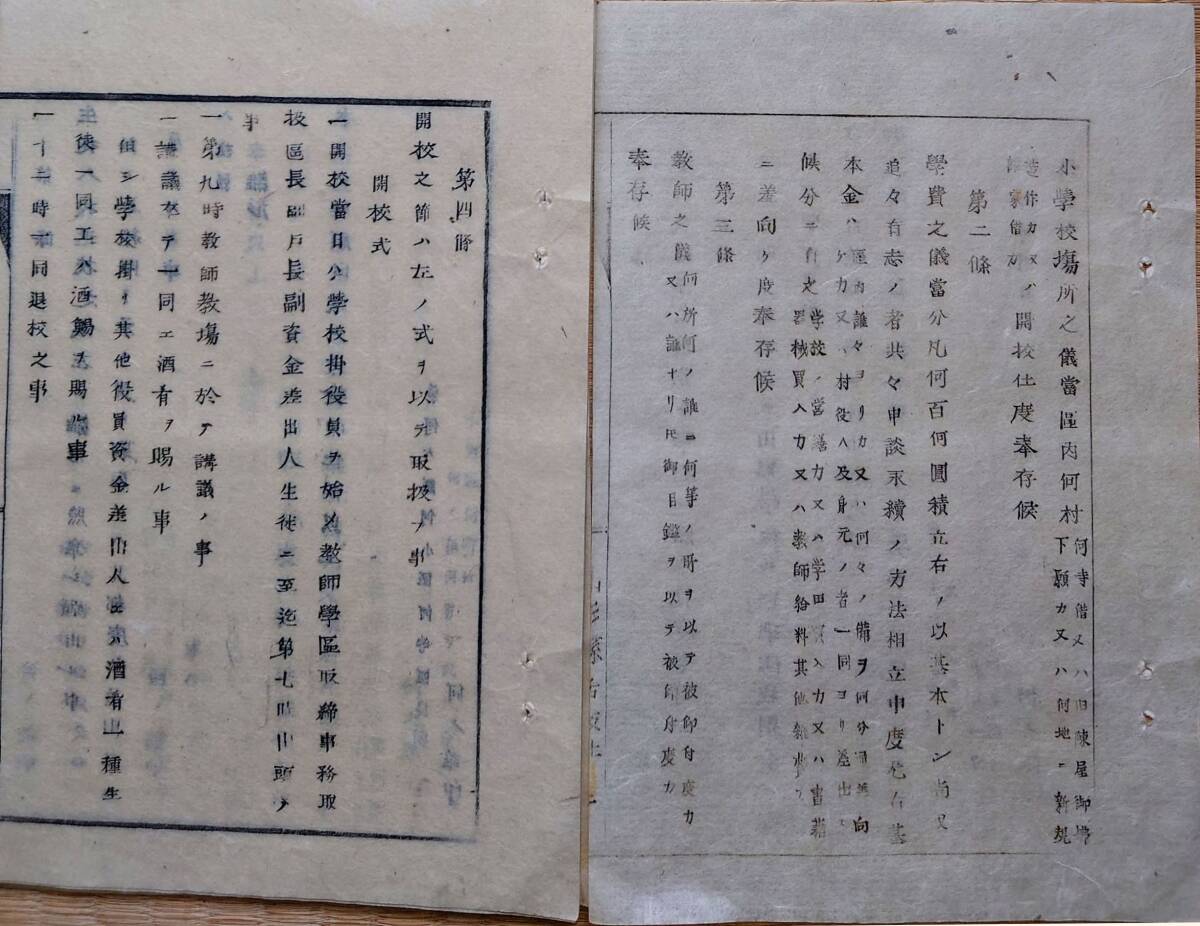 小學校塲所之儀當區内何村何寺借又ハ旧陳屋御拂
下願カ又ハ何地ニ新規
造作カ又ハ開校仕度奉存候
第二條
學費之儀當分凡何百何圓積立右ノ以基本トシ尚又
追々有志ノ者共々申談永續ノ方法相立申度尤右基
本金ハ區内誰々ヨリカ又ハ何々ノ備ヲ何分通差向
ケカ又ハ村役人及身元ノ者一同ヨリ差出シ
候分ニ有之学校ノ営繕カ又ハ学田買入カ又ハ書籍
器械買入カ又ハ教師給料其他雑費
ニ差向ケ度奉存候
第三條
教師之儀何所何ノ誰ニ何等ノ所ヲ以テ被仰付度カ
又ハ誰ナリ𪜈御目鑑ヲ以テ被仰付度カ
奉存候
第四條
開校之節ハ左ノ式ヲ以テ取扱フ事
開校式
一開校當日小學校掛役員ヲ始為教師學區取締事務取
扱區長副戸長副資金差出人生徒ニ至迄第七時出頭ノ
事
一第九時教師教塲ニ於テ講議ノ事
一講議卒テ一同エ酒肴ヲ賜ル事
但シ學校掛リ其他役員資金差出人酒肴一種生
徒一同エハ酒鯣ヲ賜ル事
一十二時一同退校之事